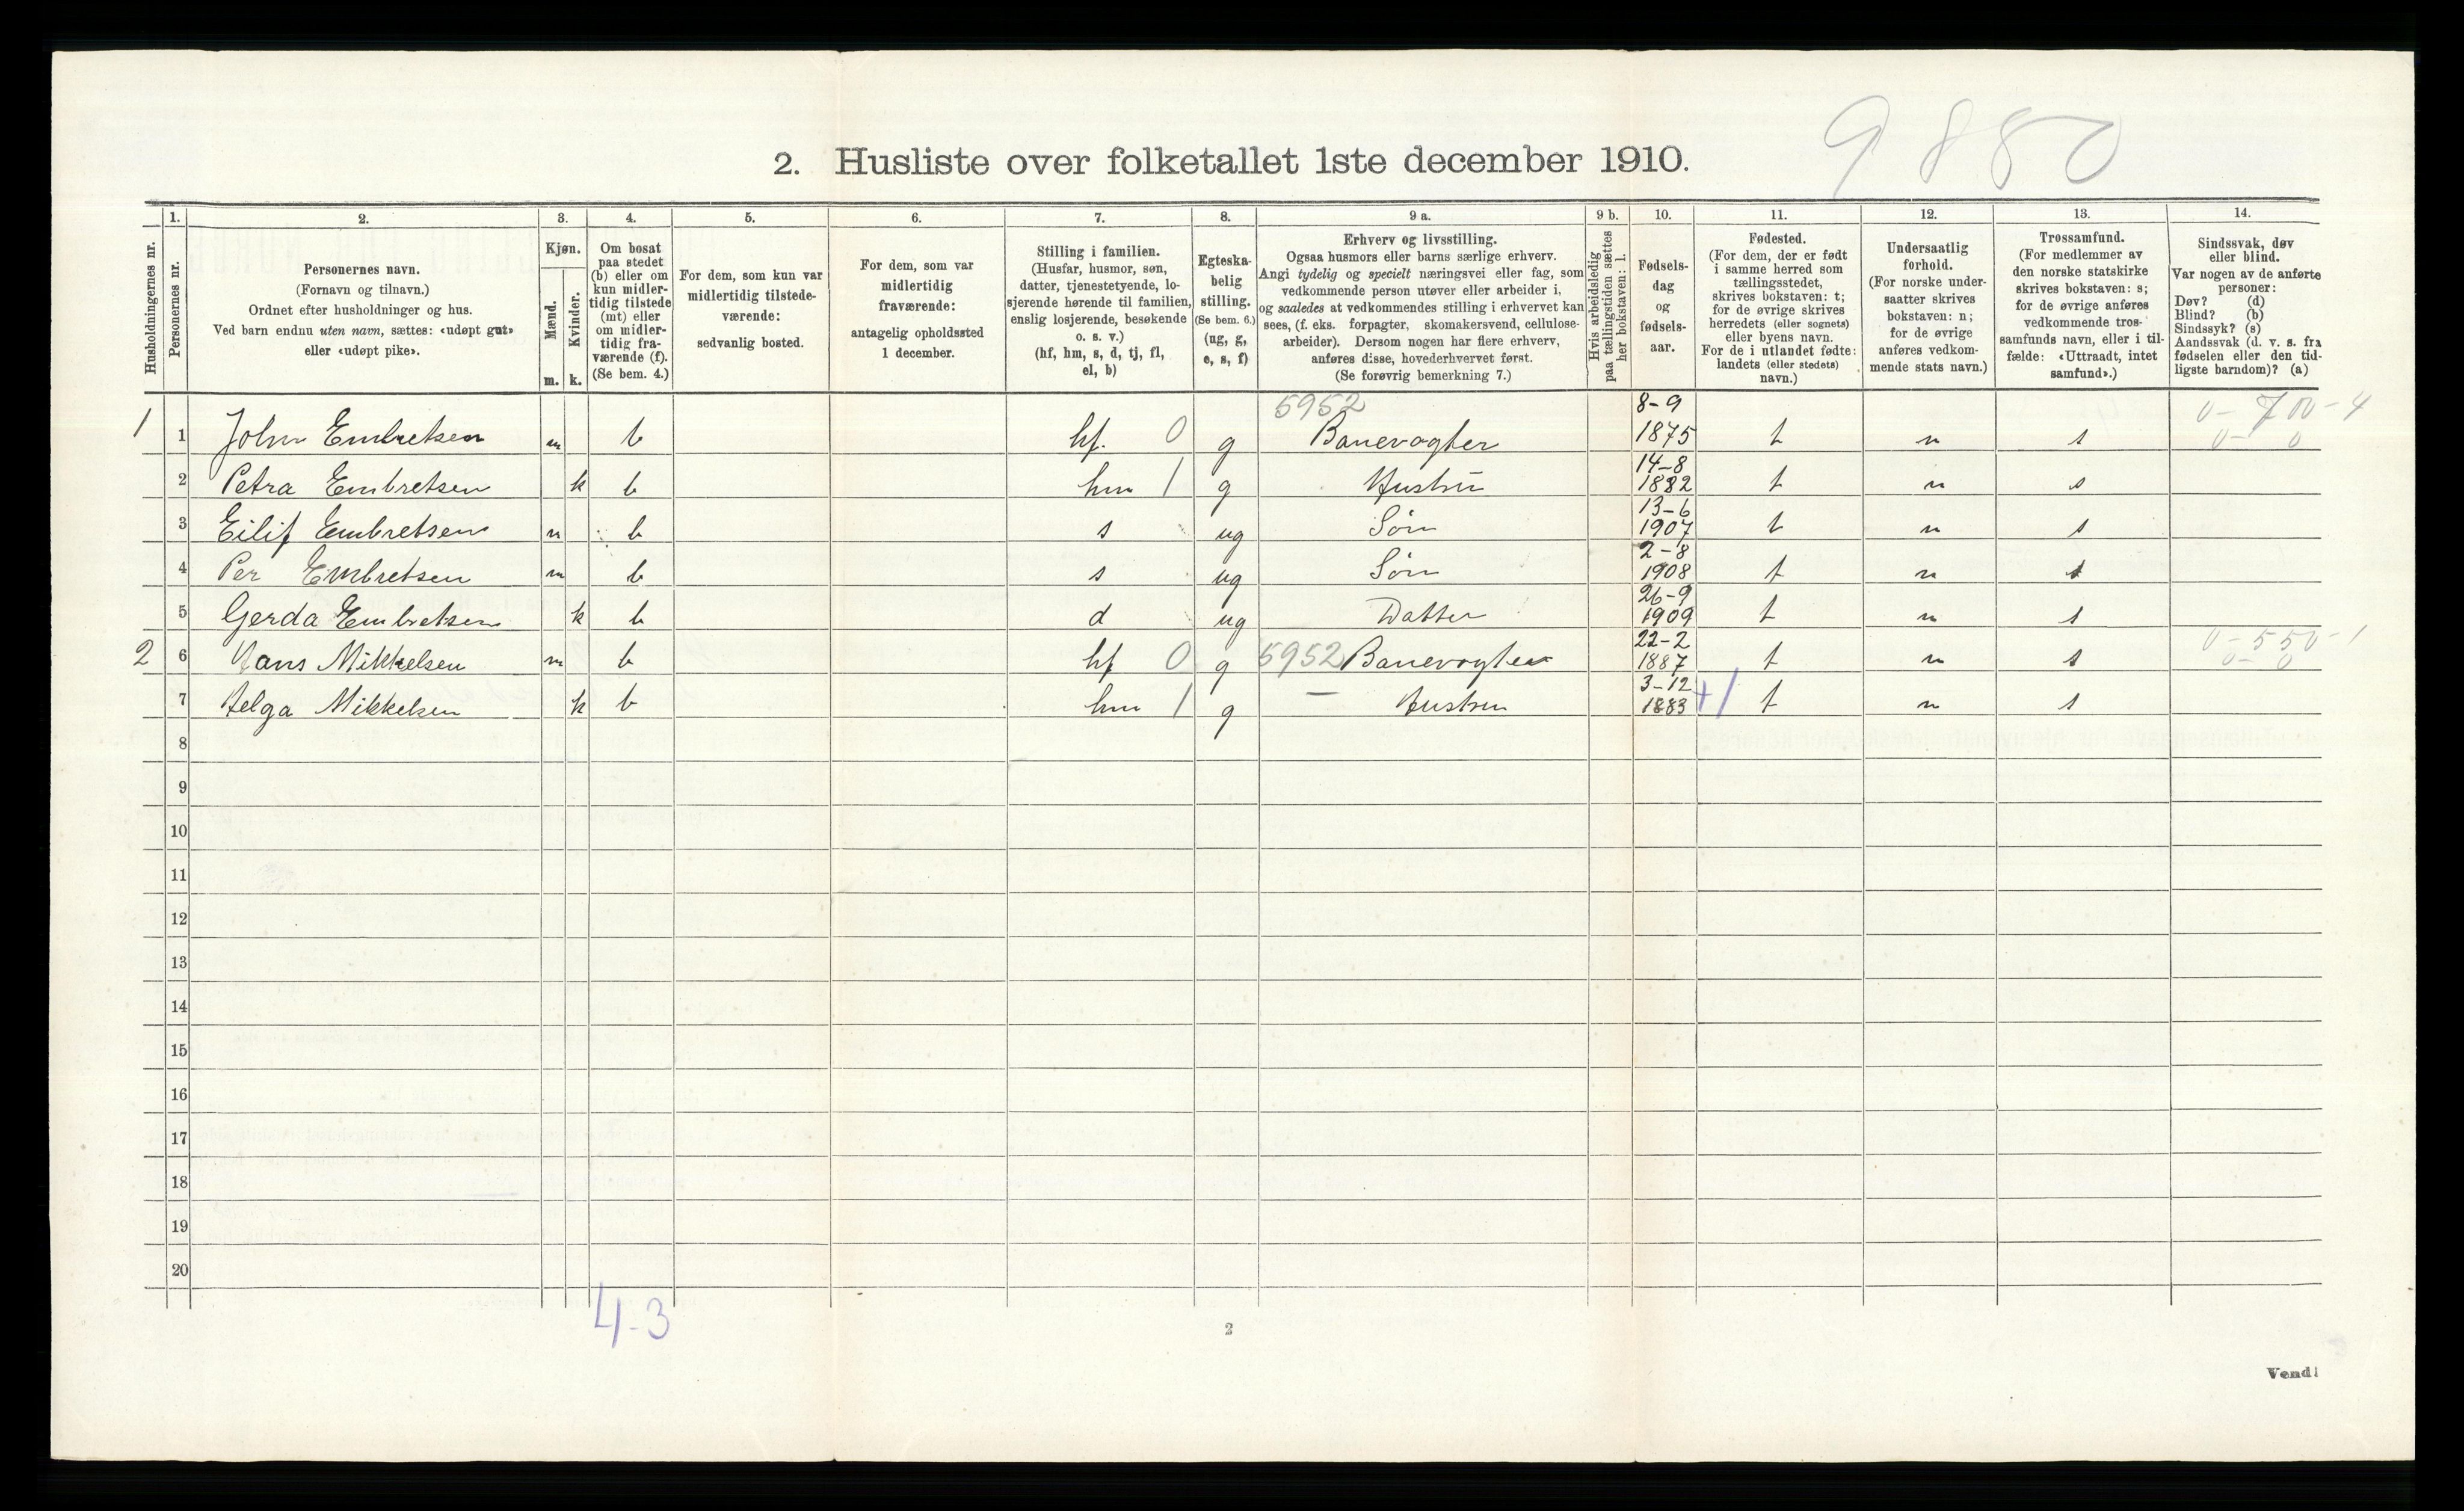 9880
2. Husliste over folketallet 1ste december 1910.
Husholdningernes nr.
1.
Personernes nr.
2.
Personernes navn.
(Fornavn og tilnavn.)
Ordnet efter husholdninger og hus.
Ved barn endnu uten navn, sættes: «udøpt gut»
eller «udøpt pike».
3.
Kjøn.
Mænd.
Kvinder.
m. k.
4.
Om bosat
paa stedet
(b) eller om
kun midler-
tidig tilstede
(mt) eller
om midler-
tidig fra-
værende (f).
(Se bem. 4.)
5.
For dem, som kun var
midlertidig tilstede-
værende:
sedvanlig bosted.
6.
For dem, som var
midlertidig
fraværende:
antagelig opholdssted
1 december.
7.
Stilling i familien.
(Husfar, husmor, søn,
datter, tjenestetyende, lo-
sjerende hørende til familien,
enslig losjerende, besøkende
o. s. v.)
(hf, hm, s, d, tj, fl,
el, b)
8.
Egteska-
belig
stilling.
(Se bem. 6.)
(ug, g,
e, s, f)
9 a.
Erhverv og livsstilling.
Ogsaa husmors eller barns særlige erhverv.
Angi tydelig og specielt næringsvei eller fag, som
vedkommende person utøver eller arbeider i,
og saaledes at vedkommendes stilling i erhvervet kan
sees, (f. eks. forpagter, skomakersvend, cellulose-
arbeider). Dersom nogen har flere erhverv,
anføres disse, hovederhvervet først.
(Se forøvrig bemerkning 7.)
9 b.
Hvis arbeidsledig
paa tællingstiden sættes
her bokstaven: l.
10.
Fødsels-
dag
og
fødsels-
aar.
11.
Fødested.
(For dem, der er født
i samme herred som
tællingsstedet,
skrives bokstaven: t;
for de øvrige skrives
herredets (eller sognets)
eller byens navn.
For de i utlandet fødte:
landets (eller stedets)
navn.)
12.
Undersaatlig
forhold.
(For norske under-
saatter skrives
bokstaven: n;
for de øvrige
anføres vedkom-
mende stats navn.)
13.
Trossamfund.
(For medlemmer av
den norske statskirke
skrives bokstaven: s;
for de øvrige anføres
vedkommende tros-
samfunds navn, eller i til-
fælde: «Uttraadt, intet
samfund».)
14.
Sindssvak, døv
eller blind.
Var nogen av de anførte
personer:
Døv? (d)
Blind? (b)
Sindssyk? (s)
Aandssvak (d. v. s. fra
fødselen eller den tid-
ligste barndom)? (a)
5952 8-9 0-700-4
1 1 John Embretsen m b hf. 0 g Banevogter 1875 t n s 0- 0
14-8
2 Petra Embretsen k b hm 1 g Hustru 1882 t n s
13-6
3 Eilif Embretsen m b s ug Søn 1907 t n s
2-8
4 Per Embretsen m b s ug Søn 1908 t n s
26-9
5 Gerda Embretsen k b d ug Datter 1909 t n s
22-2 0-550-1
2 6 Hans Mikkelsen m b hf 0 g 5952 Banevogter 1887 t n s 0- 0
3-12
7 Helga Mikkelsen k b hm 1 g — Hustru 1883 +1 t n s
8
9
10
11
12
13
14
15
16
17
18
19
20
4-3
2
Vend!